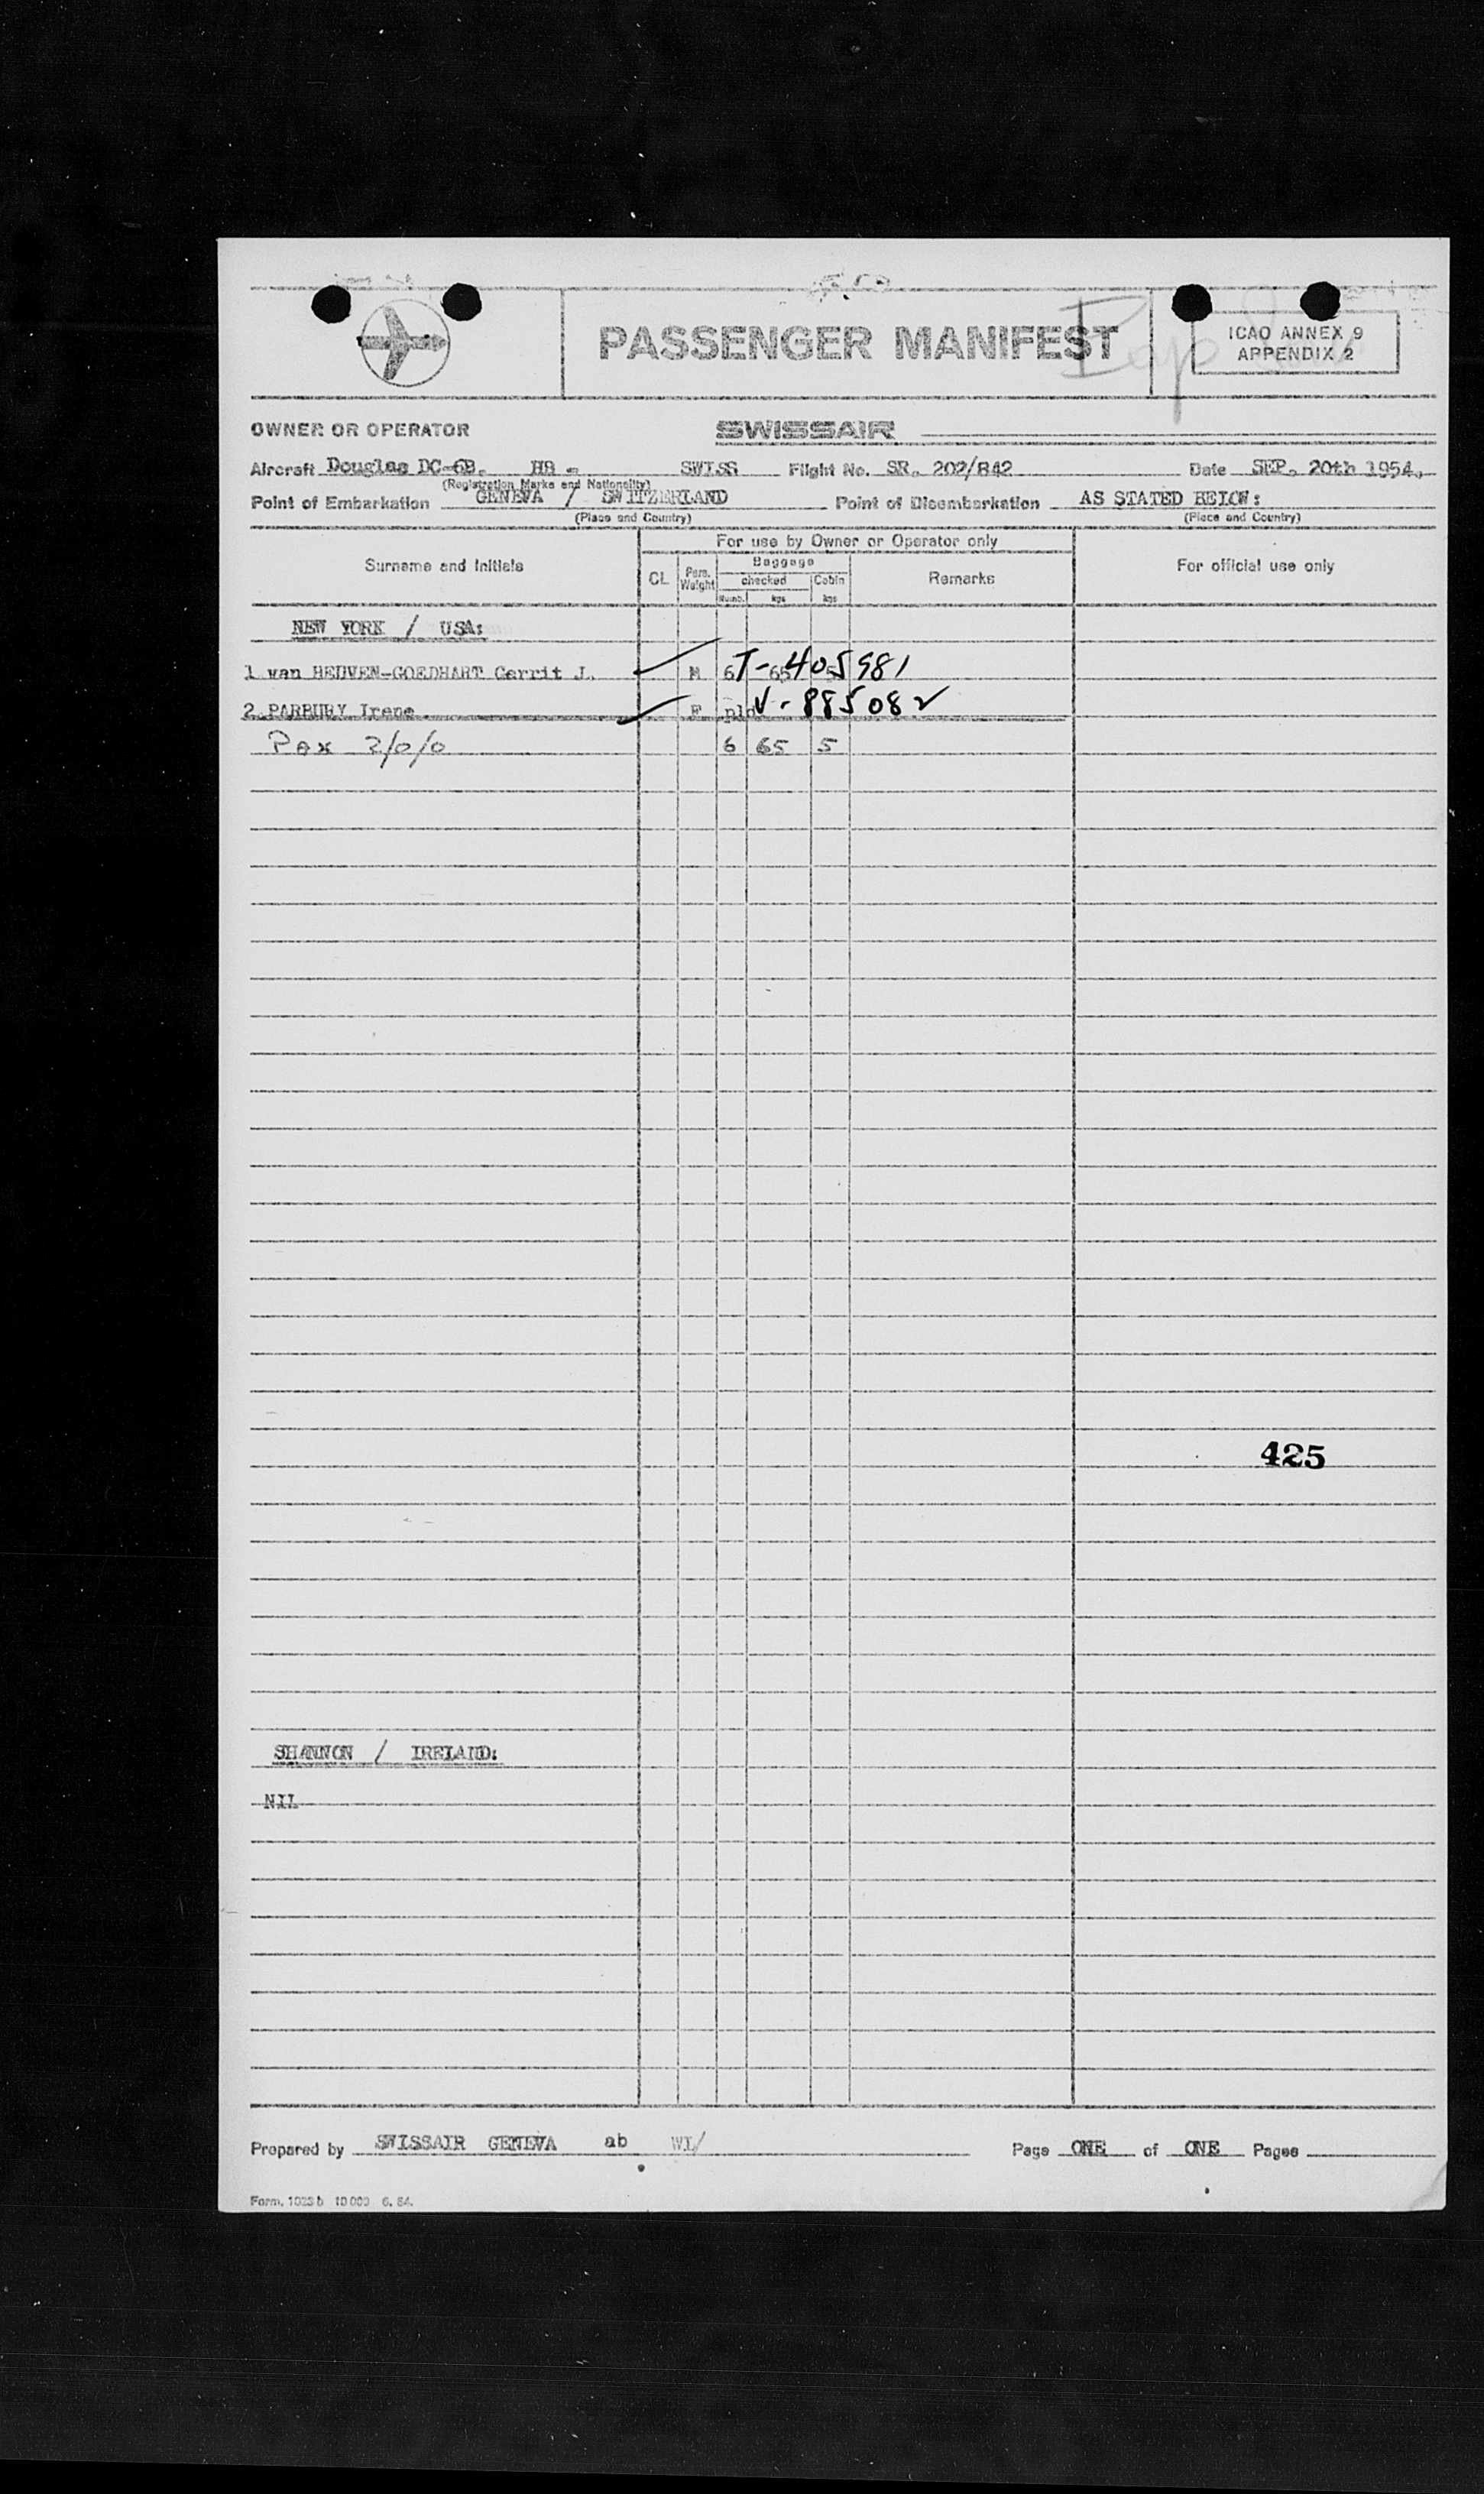 PASSENGER MANIFEST
ICAO ANNEX 9
APPENDIX 2
OWNER OR OPERATOR SWISSAIR
Aircraft Douglas DC-6B. HB - SWISS Flight No. SR. 202/842 Date SEP. 20th 1954.
(Registration Marks and Nationality)
Point of Embarkation GENEVA / SWITZERLAND Point of Disembarkation AS STATED BELOW:
(Place and Country) (Place and Country)
For use by Owner or Operator only
Surname and Initials CL Pers. Weight Baggage Remarks For official use only
checked Cabin
Numb. kgs kgs
NEW YORK / USA:
1 van HEUVEN-GOEDHART Gerrit J. M 6 65 5 T-405981
2 PARBURY Irene F pld V-885082
Pax 2/0/0 6 65 5
425
SHANNON / IRELAND:
NIL
Prepared by SWISSAIR GENEVA ab WI/ Page ONE of ONE Pages
Form. 1023b 10 000 6. 54.